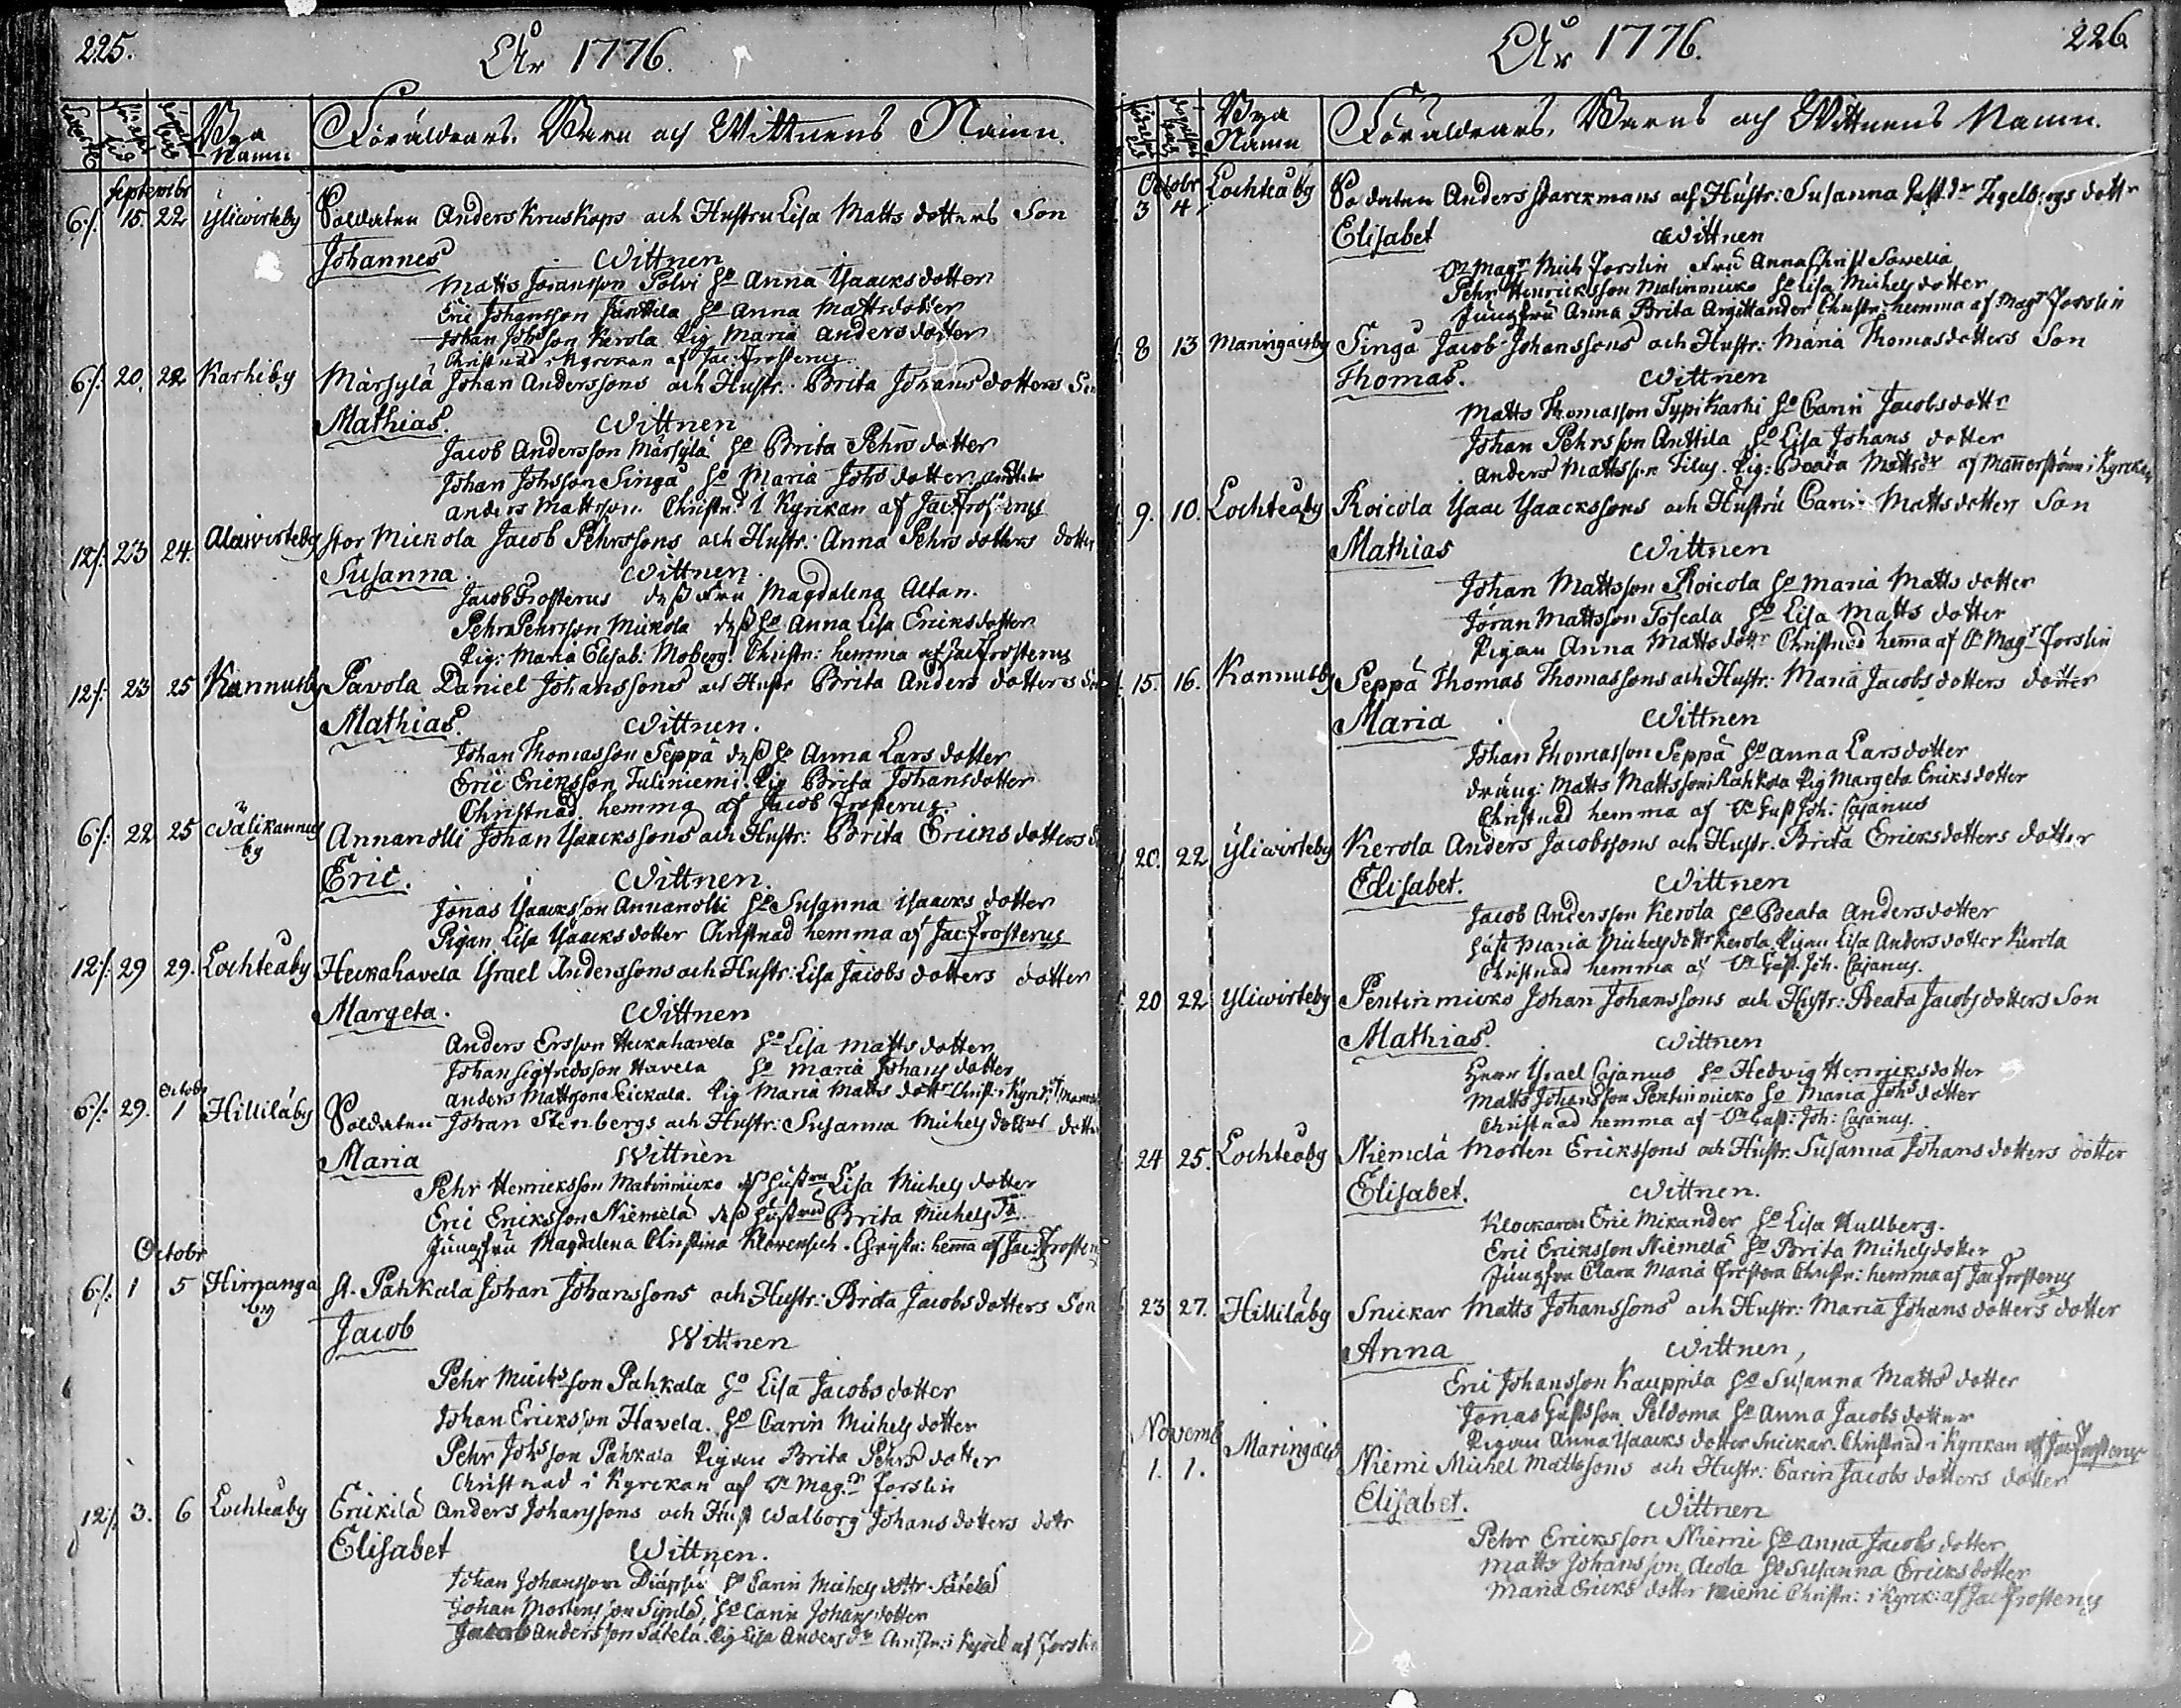 225.
År 1776.
Bya Namn
Föräldrars, Barn och Wittnens Namn.
Septembr
6/. 15. 22 Yliwirteby Soldaten Anders Kruskops och Hustru Lisa Matts dotters Son
Johannes Wittnen
Matts Göransson Polvi Ho Anna Ysaacksdotter
Eric Johansson Junttila Ho Anna Mattsdotter
Johan Johsson Kerola Pig Maria Andersdotter
Christnad i Kyrckan af Jac: Frosterus.
6/. 20. 22 Karhiby Märsylä Johan Anderssons och Hustr. Brita Johans dotters Son
Mathias. Wittnen
Jacob Andersson Märsylä Ho Brita Pehrs dotter
Johan Johsson Singa Ho Maria Johs dotter
Anders Mattsson. Christnd i Kyrckan af Jac: Frosterus
12/. 23 24. Alawirteby Stor Mickola Jacob Pehrssons och Hustr: Anna Pehrs dotters dotter
Susanna. Wittnen.
Jacob Frosterus dess Fru Magdalena Altan.
Pehr Pehrsson Mickola dess Ho Anna Lisa Ericksdotter
Pig: Maria Elisab: Moberg. Christn: hemma af Jac Frosterus
12/. 23 25 Kannusby Pavola Daniel Johanssons och Hustr Brita Anders dotters
Mathias. Wittnen.
Johan Thomasson Seppä dess Ho Anna Lars dotter
Eric Ericksson Tuliniemi. Pig Brita Johansdotter
Christnad hemma af Jacob Frosterus.
6/. 22 25 Wälikannus by Annanolli Johan Ysaackssons och Hustr: Brita Ericks dotters
Eric. Wittnen.
Jonas Ysaacksson Annanolli Ho Susanna Isaacks dotter
Pigan Lisa Ysaacks dotter Christnad hemma af Jac: Frosterus
12/. 29 29. Lochteåby Heckahavela Israel Anderssons och Hustr: Lisa Jacobs dotters dotter
Margeta. Wittnen
Anders Ersson Heckahavela Ho Lisa Matts dotter
Johan Sigfredsson Havela Ho Maria Johans dotter
Anders Mattssona Leickala. Pig Maria Matts dottr Christ: i Kyrck:
Octobr
6/. 29. 1 Hilliläby Soldaten Johan Stenbergs och Hustr: Susanna Michels dotters dotter
Maria Wittnen
Pehr Henricksson Matinmicko Hustru Lisa Michels dotter
Eric Ericksson Niemelä dess Hustru Brita Michels
Jungfru Magdalena Christina Klovensich. Christn: hemma af Jac: Froster
Octobr
6/. 1 5 Himanga by St. Pahkala Johan Johanssons och Hustr: Brita Jacobs dotters Son
Jacob Wittnen
Pehr Michsson Pahkala Ho Lisa Jacobs dotter
Johan Ericksson Havela. Ho Carin Michels dotter
Pehr Johsson Pahkala Pigan Brita Pehrs dotter
Christnad i Kyrckan af Magr Forslin
12/. 3. 6 Lochteåby Erickilä Anders Johanssons och Hust Walborg Johans dotters dotr
Elisabet Wittnen.
Johan Johansson Ho Carin Michels dottr Sätelä
Johan Mortensson Sipilä, Ho Carin Johans dotter
Jacob Andersson Sätela. Pig Lisa Anders dr Christn: i Kyrck af Forslin
226
År 1776.
Bya Namn
Föräldrars, Barns och Wittnens Namn.
Octobr
3 4 Lochteåby Soldaten Anders Starckmans och Hustr: Susanna Zegelbergs dottr
Elisabet Wittnen
Magr Mich Forslin Fru Anna Christ Sawelia
Pehr Henricksson Matinmicko Ho Lisa Michels dotter
Jungfru Anna Brita Argittander Christn: hemma af Magr Forslin
8 13 Maringaisby Singa Jacob Johanssons och Hustr: Maria Thomasdotters Son
Thomas. Wittnen
Matts Thomasson Typikarhi Ho Carin Jacobsdottr
Johan Pehrsson Anttila Ho Lisa Johans dotter
Anders Mattsson Filus. Pig: Beata Mattsdr af Mannerström i Kyrckan
9. 10. Lochteåby Roicola Ysaac Ysaackssons och Hustru Carin Mattsdotters Son
Mathias Wittnen
Johan Mattsson Roicola Ho Maria Matts dotter
Jöran Mattsson Toscala Ho Lisa Matts dotter
Pigan Anna Matts dottr Christnad hema af Magr Forslin
15. 16. Kannusby Seppä Thomas Thomassons och Hustr: Maria Jacobs dotters dotter
Maria Wittnen
Johan Thomasson Seppä Ho Anna Larsdotter
dräng: Matts Mattsson Rahkola Pig Margeta Ericksdotter
Christnad hemma af Joh: Cajanus
20. 22 Yliwirteby Kerola Anders Jacobssons och Hustr. Brita Ericksdotters dotter
Elisabet. Wittnen
Jacob Andersson Kerola Ho Beata Andersdotter
Hust Maria Michelsdottr Kerola Pigan Lisa Anders dotter Kerola
Christnad hemma af Joh. Cajanus.
20 22 Yliwirteby Pentinmicko Johan Johanssons och Hustr: Beata Jacobsdotters Son
Mathias. Wittnen
Herr Ysrael Cajanus Ho Hedvig Henricksdotter
Matts Johansson Pentinmicko Ho Maria Johsdotter
Christnad hemma af Joh: Cajanus.
24 25. Lochteåby Niemelä Morten Erickssons och Hustr. Susanna Johansdotters dotter
Elisabet. Wittnen.
Klockaren Eric Mikander Ho Lisa Hullberg.
Eric Ericksson Niemelä Ho Brita Michelsdotter
Jungfru Clara Maria Christn: hemma af Jac Frosterus
23 27. Hilliläby Snickar Matts Johanssons och Hustr: Maria Johans dotters dotter
Anna Wittnen,
Eric Johansson Kauppila Ho Susanna Matts dotter
Jonas Gustsson Peldoma Ho Anna Jacobs dotter
Pigan Anna Ysaacks dotter Snickar. Christnad i Kyrckan af Jac Frosterus
Novemb
1. 1. Maringais Niemi Michel Mattssons och Hustr: Carin Jacobs dotters dotter
Elisabet. Wittnen
Pehr Ericksson Niemi Ho Anna Jacobs dotter
Matts Johansson Ho Susanna Ericksdotter
Maria Ericks dotter Niemi Christn: i Kyrck: af Jac Frosterus